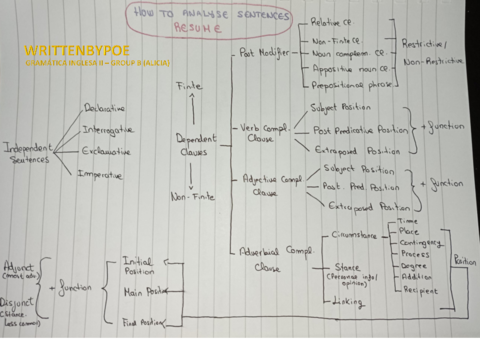 HOW TO ANALYSE SENTENCES
RESUME
WRITTENBYPOE
GRAMÁTICA INGLESA II – GROUP II (ALICIA)
Independent
Sentences
Declarative
Interrogative
Exclamative
Imperative
Finite
Dependent
Clauses
Non-Finite
Post Modifier
Relative Ce.
Non-Finite Ce.
Noun complem Ce.
Appositive noun ce.
Prepositional phrase.
Restrictive/
Non-Restrictive
Verb Compl.
Clause
Subject Position
Post Predicative Position
Extraposed Position
+ function
Adjective Compl.
Clause
Subject Position
Post. Pred. Position
Extraposed Position
+ function
Adverbial Compl.
Clause
Circumstance
Time
Place
Contingency
Process
Degree
Addition
Recipient
Stance
(Personal info/
opinion)
Linking
Position
Adjunct
Disjunct
+ function
Initial
Position
Main Position
Final Position